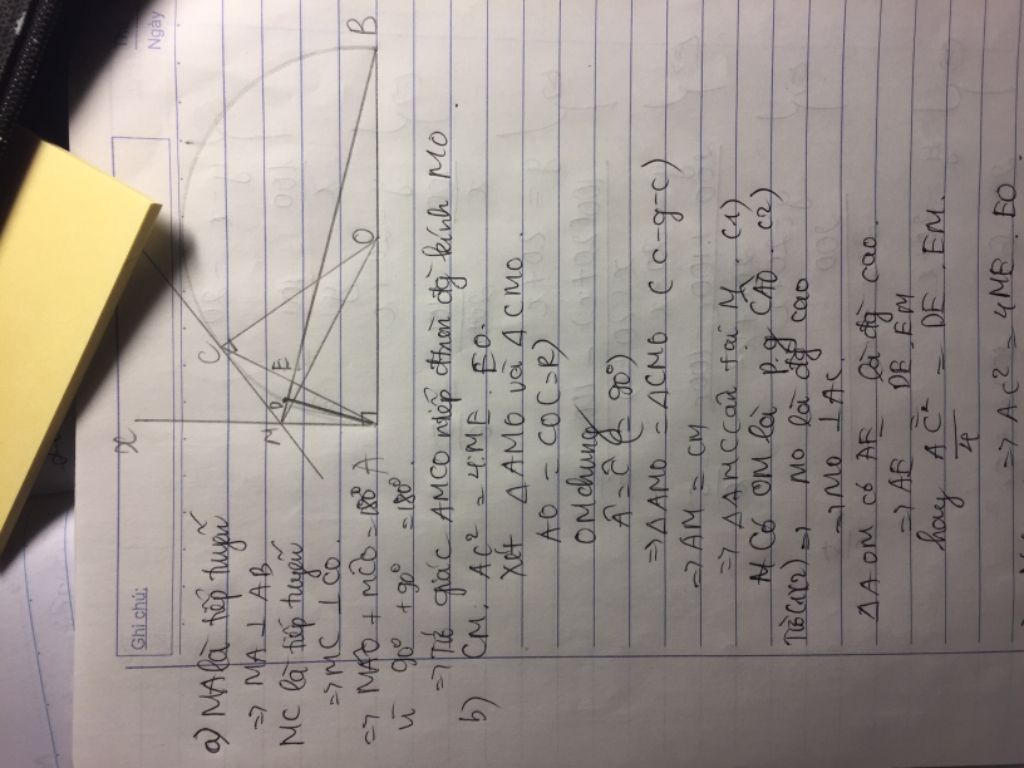 Ngày
Ghi chú:
x
M
C
D
E
A
O
B
a) MA là tiếp tuyến
=> MA ⊥ AB
MC là tiếp tuyến
=> MC ⊥ CO.
=> MAO + MCO = 180°
vì 90° + 90° = 180°
=> Tứ giác AMCO nội tiếp đường kính MO
b) CM. AC² = 4ME. EO.
Xét ΔAMO và ΔCMO.
AO = CO (= R)
OM chung
Â = Ĉ (= 90°)
=> ΔAMO = ΔCMO (c-g-c)
=> AM = CM
=> ΔAMC cân tại M. (1)
Có OM là p/g CÂO (2)
Từ (1)(2) => MO là đg cao
=> MO ⊥ AC.
ΔAOM có AE là đg cao.
=> AE = DE. EM
hay AC²/4 = DE. EM.
=> AC² = 4ME. EO